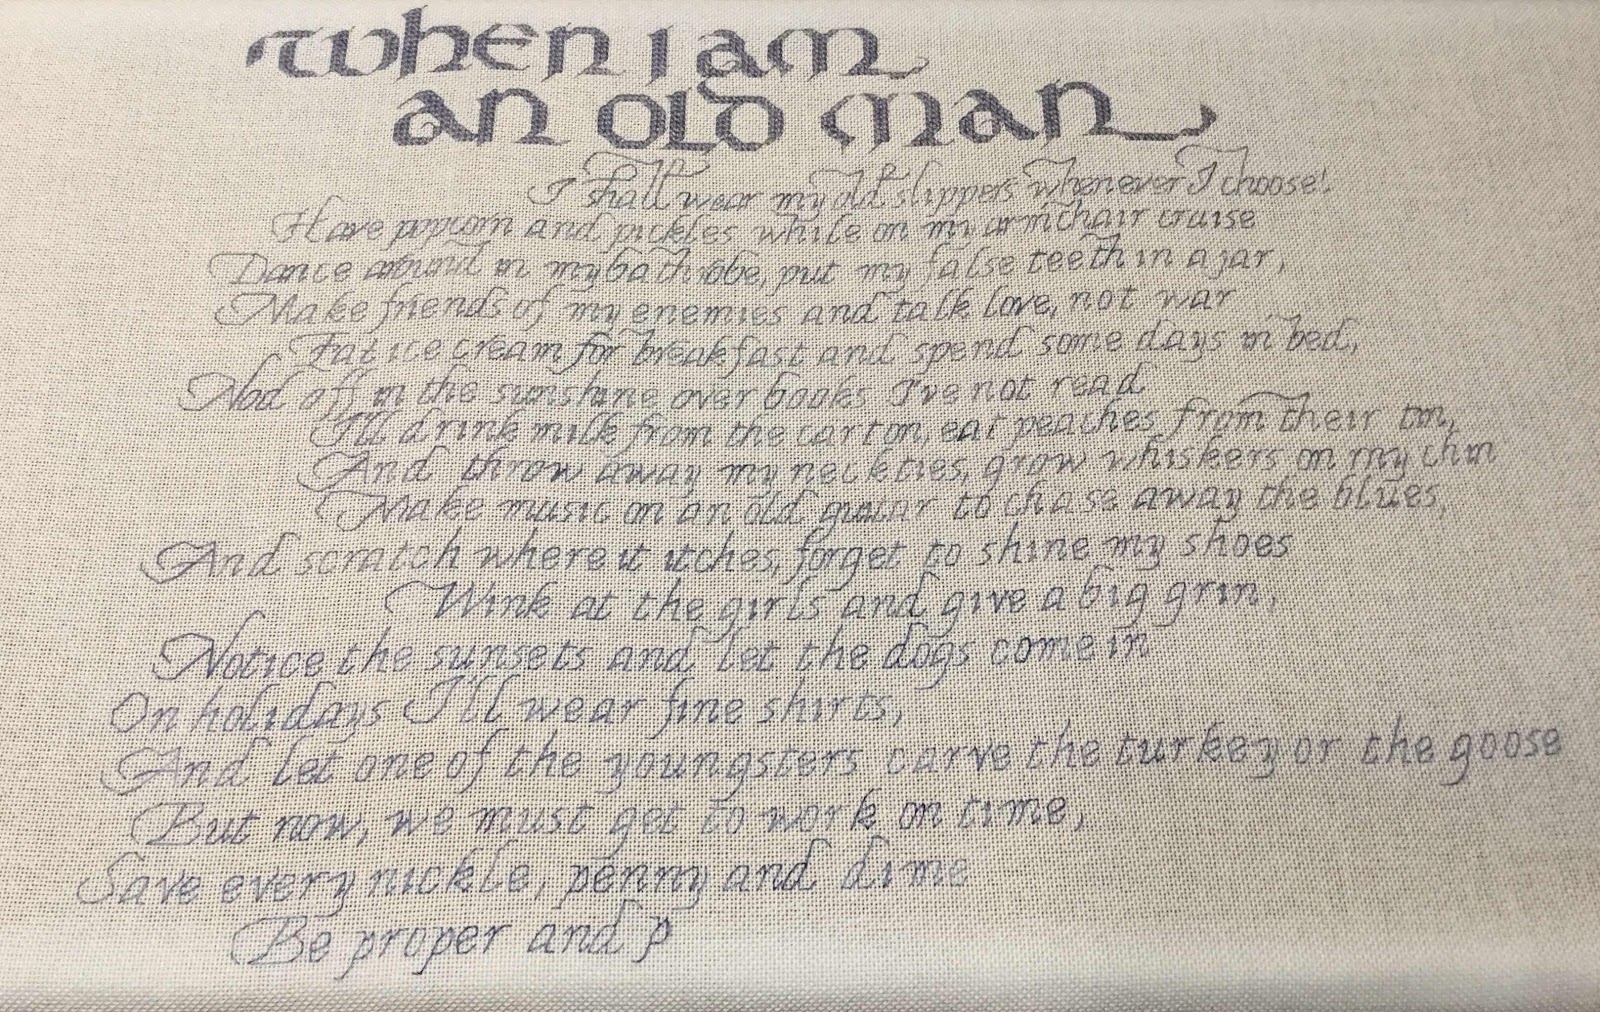 When I am
an old man
I shall wear my old slippers whenever I choose!
Have popcorn and pickles while on my armchair cruise
Dance around in my bathrobe, put my false teeth in a jar,
Make friends of my enemies and talk love, not war
Eat ice cream for breakfast and spend some days in bed,
Nod off in the sunshine over books I've not read
I'll drink milk from the carton, eat peaches from their tin,
And throw away my neckties, grow whiskers on my chin
Make music on an old guitar to chase away the blues,
And scratch where it itches, forget to shine my shoes
Wink at the girls and give a big grin,
Notice the sunsets and let the dogs come in
On holidays I'll wear fine shirts,
And let one of the youngsters carve the turkey or the goose
But now, we must get to work on time,
Save every nickle, penny and dime
Be proper and p